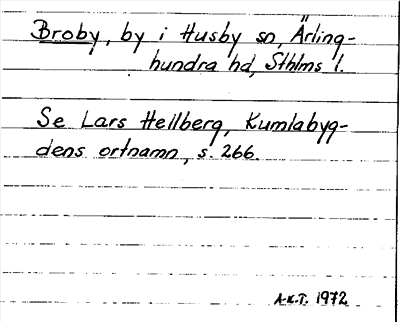 Broby, by i Husby sn, Ärling-
hundra hd, Sthlms l.
Se Lars Hellberg, Kumlabyg-
dens ortnamn, s. 266.
A.K.T. 1972